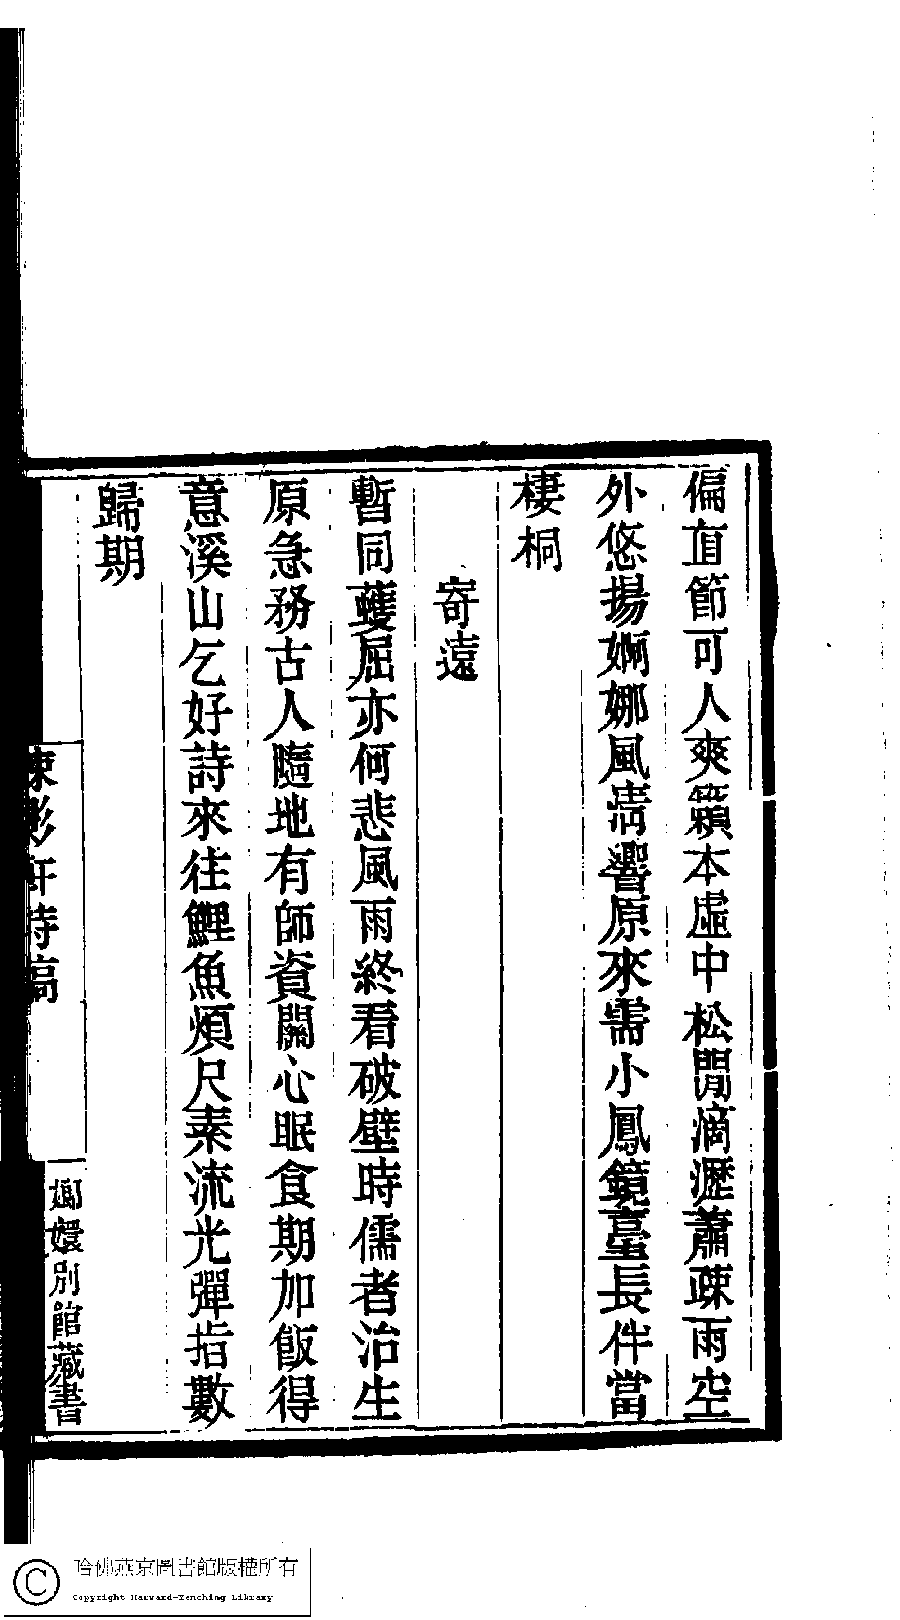 偏直節可人爽籟本虛中松閒滴瀝蕭疎雨空
外悠揚婀娜風淸響原來需小鳳鏡臺長伴當
棲桐
寄遠
暫同蠖屈亦何悲風雨終看破壁時儒者治生
原急務古人隨地有師資關心眠食期加飯得
意溪山乞好詩來往鯉魚煩尺素流光彈指數
歸期
影軒詩稿
嫏嬛別館藏書
哈佛燕京圖書館版權所有
Copyright Harvard-Yenching Library